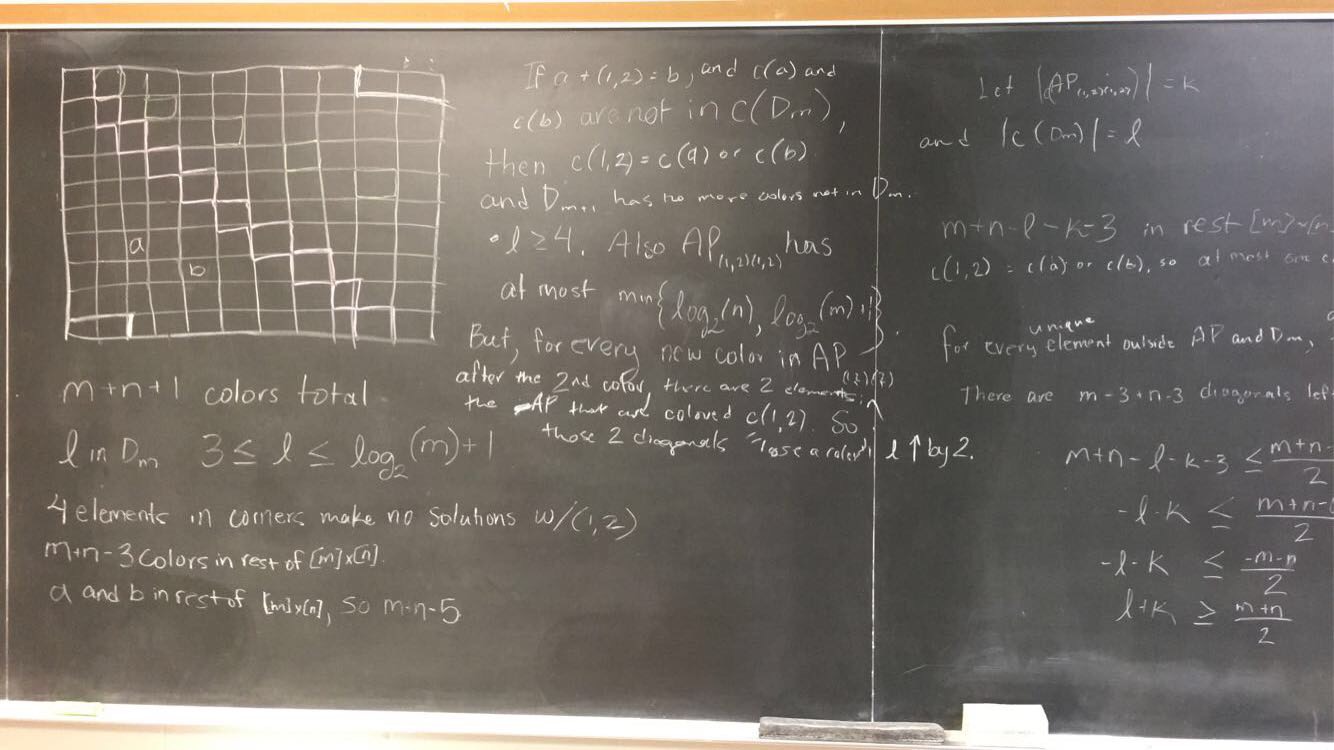 a
b
m+n+1 colors total
l in Dₘ 3 ≤ l ≤ log₂(m)+1
4 elements in corners make no solutions w/(1,2)
m+n-3 colors in rest of [m]x[n].
a and b in rest of [m]x[n], so m+n-5
If a + (1,2) = b, and c(a) and
c(b) are not in c(Dₘ),
then c(1,2) = c(a) or c(b)
and Dₘ₊₁ has no more colors not in Dₘ.
• l ≥ 4. Also AP₍₁,₂₎₍₁,₂₎ has
at most min{log₂(n), log₂(m)+1}.
But, for every new color in AP₍₁,₂₎₍,₂₎
after the 2nd color, there are 2 elements in
the AP that are colored c(1,2). So
those 2 diagonals "lose a color" l ↑ by 2.
Let |AP₍₁,₂₎₍₁,₂₎| = k
and |c(Dₘ)| = l
m+n-l-k-3 in rest [m]x[n
c(1,2) = c(a) or c(b), so at most one c
for every unique element outside AP and Dₘ,
There are m-3+n-3 diagonals left
m+n-l-k-3 ≤ m+n-/2
-l-k ≤ m+n-/2
-l-k ≤ -m-n/2
l+k ≥ m+n/2